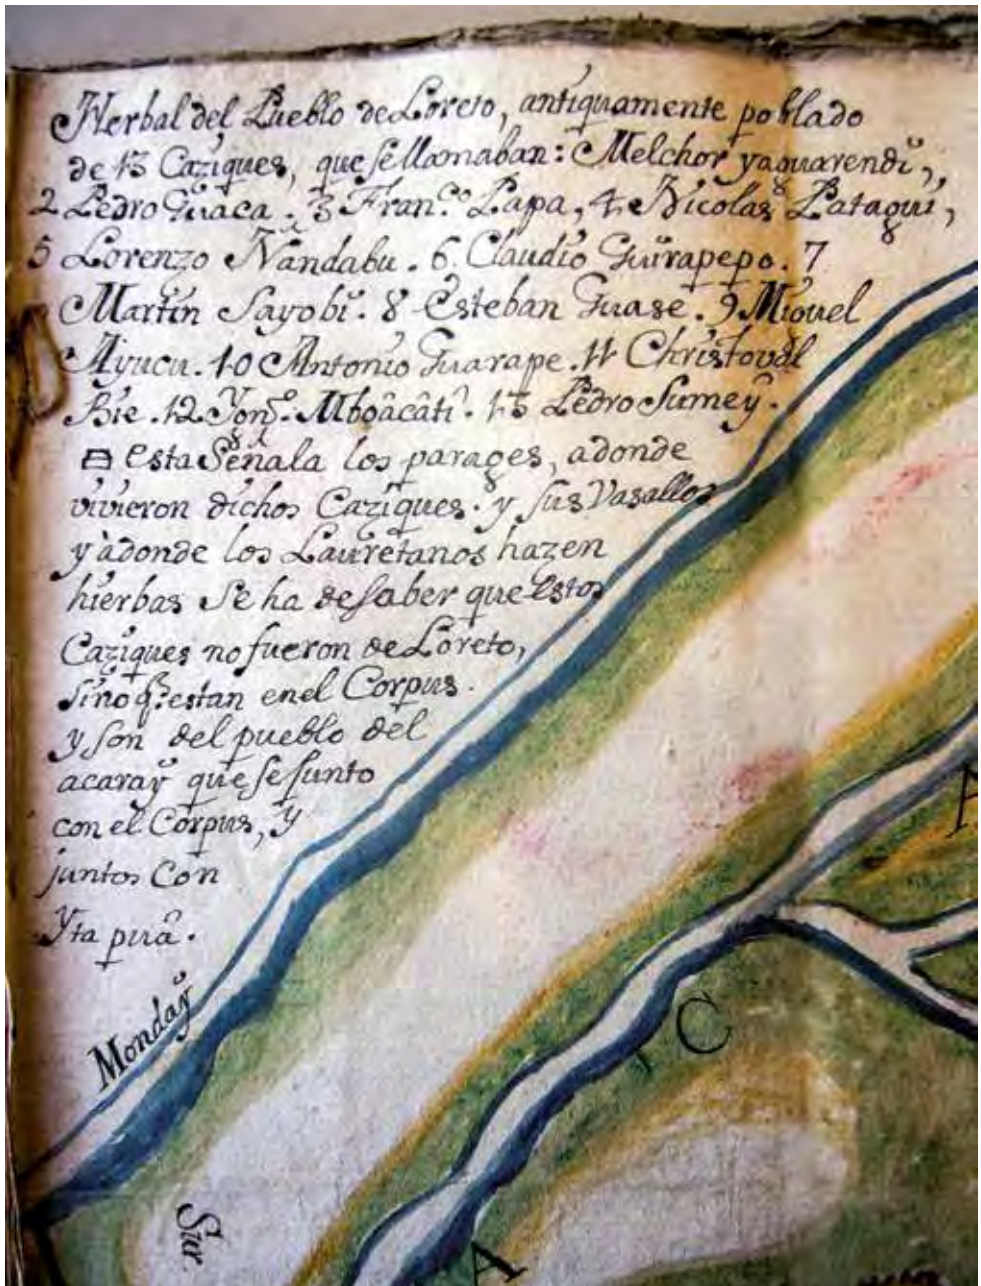 Yerbal del Pueblo de Loreto, antiquamente poblado
de 13 Caziques, que se llamaban: Melchor yaguarendĩ,
2 Pedro Guaca. 3 Fran.co Papa, 4 Nicolas Patagui,
5 Lorenzo Ñandabu. 6 Claudio Guirapepo. 7
Martin Sayobi. 8 Esteban Guase. 9 Miguel
Ayucu. 10 Antonio Guarape. 11 Christoval
Bie. 12 Mboâcâti. 13 Pedro Sumeỹ.
esta Señala los parages, adonde
vivieron dichos Caziques. y sus Vasallos
y àdonde los Lauretanos hazen
hierbas Se ha de saber que estos
Caziques no fueron de Loreto,
sino q.e estan en el Corpus.
y son del pueblo del
acaraỹ que se junto
con el Corpus, y
juntos Con
Yta pua.
Mondaỹ
Sur
A
C
A